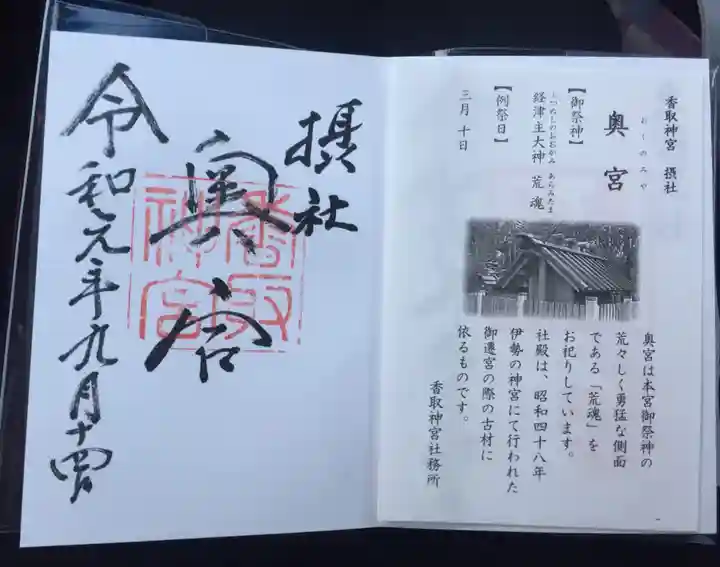 香取神宮 摂社
おくのみや
奥宮
【御祭神】
ふつぬしのおおかみ あらみたま
経津主大神 荒魂
【例祭日】
三月 十日
奥宮は本宮御祭神の
荒々しく勇猛な側面
である「荒魂」を
お祀りしています。
社殿は、昭和四十八年
伊勢の神宮にて行われた
御遷宮の際の古材に
依るものです。
香取神宮社務所
摂社
奥宮
香取神宮
令和元年九月十四日